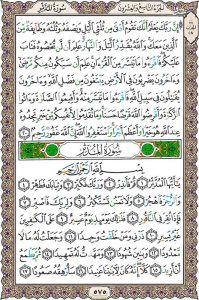 سُورَةُ المُزَّمِّل الجُزءُ التَّاسِعُ وَالعِشْرُونَ
إِنَّ رَبَّكَ يَعْلَمُ أَنَّكَ تَقُومُ أَدْنَىٰ مِن ثُلُثَيِ ٱلَّيْلِ وَنِصْفَهُۥ وَثُلُثَهُۥ وَطَآئِفَةٌ مِّنَ
ٱلَّذِينَ مَعَكَ وَٱللَّهُ يُقَدِّرُ ٱلَّيْلَ وَٱلنَّهَارَ عَلِمَ أَن لَّن تُحْصُوهُ فَتَابَ
عَلَيْكُمْ فَٱقْرَءُوا۟ مَا تَيَسَّرَ مِنَ ٱلْقُرْءَانِ عَلِمَ أَن سَيَكُونُ مِنكُم مَّرْضَىٰ
وَءَاخَرُونَ يَضْرِبُونَ فِى ٱلْأَرْضِ يَبْتَغُونَ مِن فَضْلِ ٱللَّهِ
وَءَاخَرُونَ يُقَٰتِلُونَ فِى سَبِيلِ ٱللَّهِ فَٱقْرَءُوا۟ مَا تَيَسَّرَ مِنْهُ وَأَقِيمُوا۟ ٱلصَّلَوٰةَ
وَءَاتُوا۟ ٱلزَّكَوٰةَ وَأَقْرِضُوا۟ ٱللَّهَ قَرْضًا حَسَنًا وَمَا تُقَدِّمُوا۟ لِأَنفُسِكُم مِّنْ خَيْرٍ تَجِدُوهُ
عِندَ ٱللَّهِ هُوَ خَيْرًا وَأَعْظَمَ أَجْرًا وَٱسْتَغْفِرُوا۟ ٱللَّهَ إِنَّ ٱللَّهَ غَفُورٌ رَّحِيمٌۢ ٢٠
سُورَةُ المُدَّثِّر
بِسْمِ ٱللَّهِ ٱلرَّحْمَٰنِ ٱلرَّحِيمِ
يَٰٓأَيُّهَا ٱلْمُدَّثِّرُ ١ قُمْ فَأَنذِرْ ٢ وَرَبَّكَ فَكَبِّرْ ٣ وَثِيَابَكَ فَطَهِّرْ ٤
وَٱلرُّجْزَ فَٱهْجُرْ ٥ وَلَا تَمْنُن تَسْتَكْثِرُ ٦ وَلِرَبِّكَ فَٱصْبِرْ ٧
فَإِذَا نُقِرَ فِى ٱلنَّاقُورِ ٨ فَذَٰلِكَ يَوْمَئِذٍ يَوْمٌ عَسِيرٌ ٩ عَلَى ٱلْكَٰفِرِينَ
غَيْرُ يَسِيرٍ ١٠ ذَرْنِى وَمَنْ خَلَقْتُ وَحِيدًا ١١ وَجَعَلْتُ لَهُۥ مَالًا
مَّمْدُودًا ١٢ وَبَنِينَ شُهُودًا ١٣ وَمَهَّدتُّ لَهُۥ تَمْهِيدًا ١٤ ثُمَّ يَطْمَعُ
أَنْ أَزِيدَ ١٥ كَلَّآ إِنَّهُۥ كَانَ لِـَٔايَٰتِنَا عَنِيدًا ١٦ سَأُرْهِقُهُۥ صَعُودًا ١٧
٥٧٥